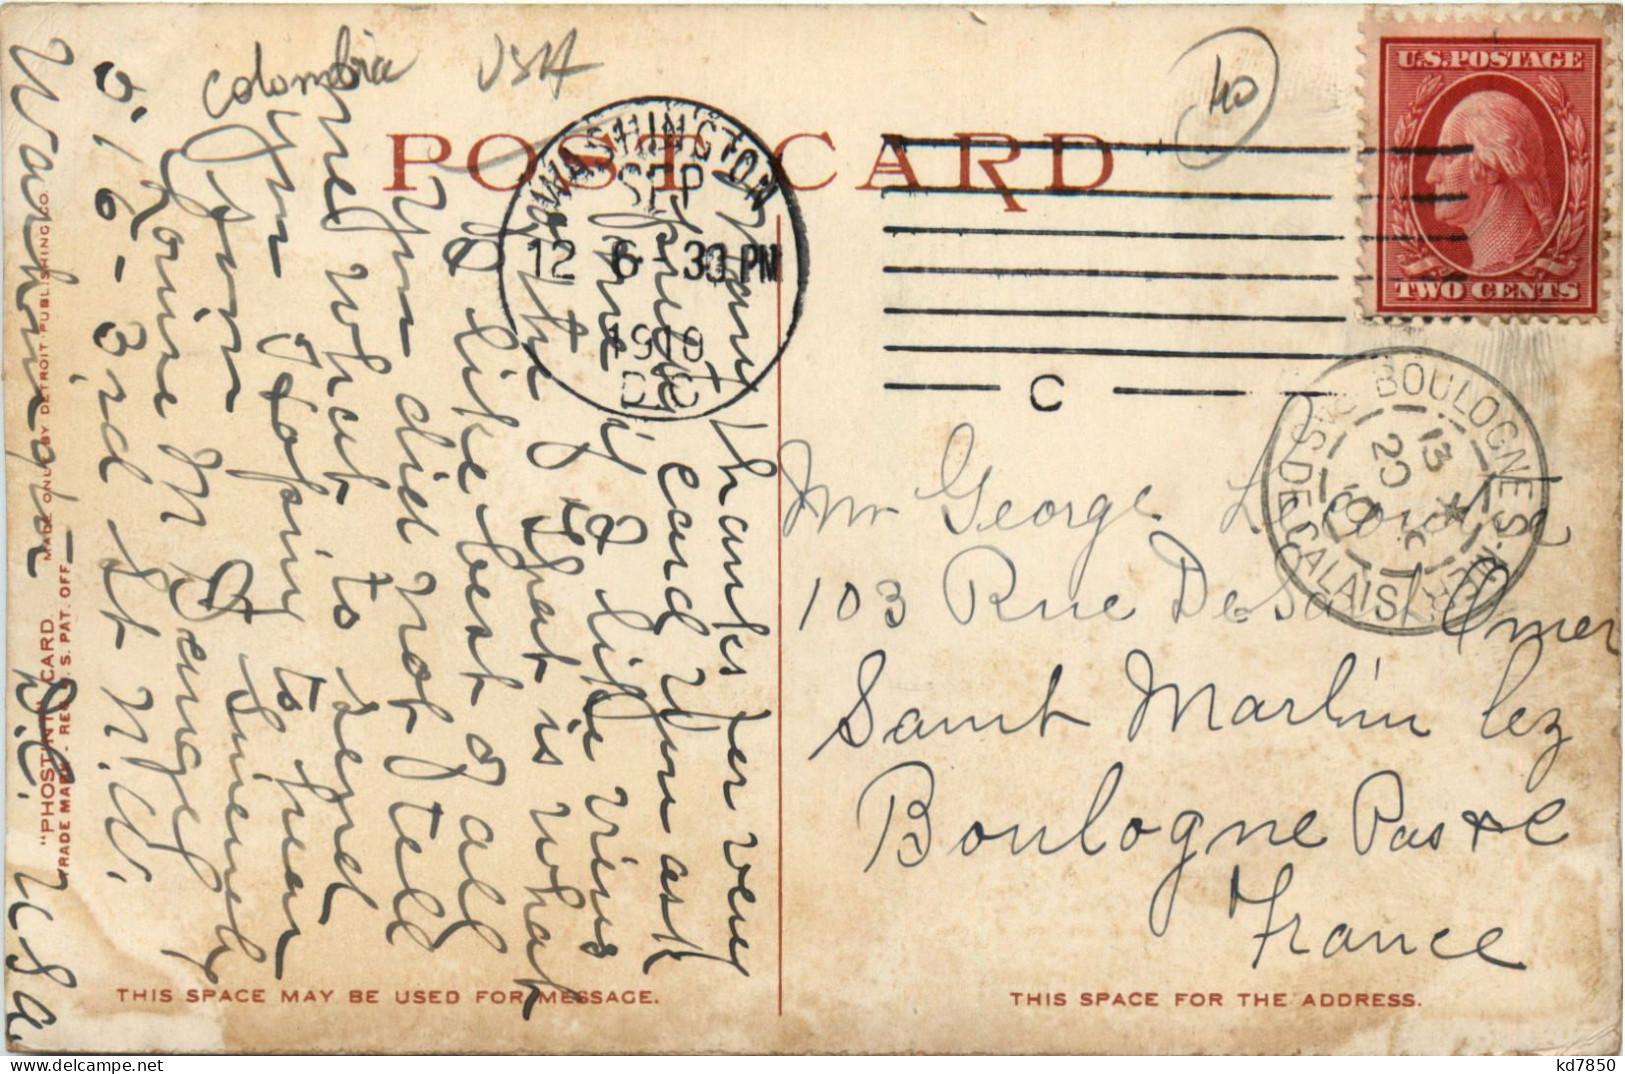 Colombia USA
40
POST CARD
U.S. POSTAGE
TWO CENTS
WASHINGTON
SEP
12 6-30 PM
1909
D.C.
C
BOULOGNE S. MER
PAS DE CALAIS
13
20
9
09
Many thanks for very
pretty card You ask
me if I like views
why yes that is what
I like best of all
You did not tell
me what to send
you Hoping to hear
from
I am Sincerely
Louise M
616 - 3rd St N.W.
Washington D.C. USA.
Mr George
103 Rue De Saint Omer
Saint Martin lez
Boulogne Pas de C
France
"PHOSTINT" CARD. MADE ONLY BY DETROIT PUBLISHING CO.
TRADE MARK - REG. U.S. PAT. OFF.
THIS SPACE MAY BE USED FOR MESSAGE.
THIS SPACE FOR THE ADDRESS.
kd7850